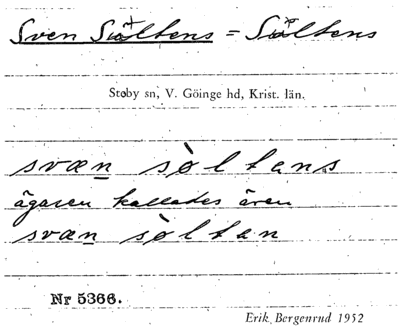 Sven Sültens = Sältens
Stoby sn, V. Göinge hd, Krist. län.
svæn sòltans
ägaren kallades även
svæn sòltan
Nr 5366.
Erik Bergenrud 1952